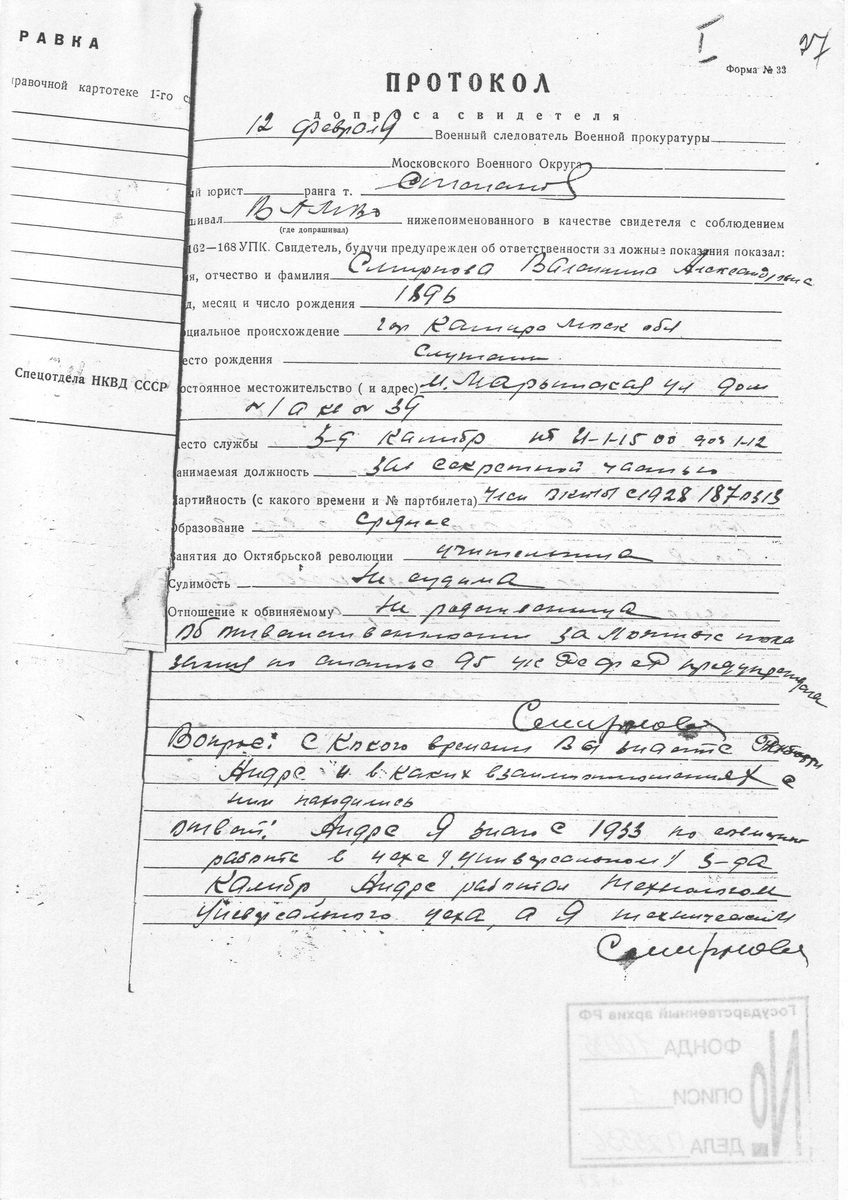 РАВКА
равочной картотеке 1-го с
Спецотдела НКВД СССР
I 27
Форма № 33
ПРОТОКОЛ
допроса свидетеля
12 февраля Военный следователь Военной прокуратуры
Московского Военного Округа
ый юрист ранга т. Степанов
шивал ВАМВО нижепоименованного в качестве свидетеля с соблюдением
(где допрашивал)
162—168 УПК. Свидетель, будучи предупрежден об ответственности за ложные показания показал:
я, отчество и фамилия Смирнова Валентина Александровна
д, месяц и число рождения 1896
оциальное происхождение гор Кашира Моск обл
есто рождения служащи
остоянное местожительство ( и адрес) М. Марьинская ул дом
№ 1а кв № 39
есто службы З-д Калибр
анимаемая должность Зав секретной частью
артийность (с какого времени и № партбилета) Член ВКП(б) с 1928
Образование среднее
Занятия до Октябрьской революции учительница
Судимость не судима
Отношение к обвиняемому не родственница
Об ответственности за ложные пока
зания по статье 95 УК РСФСР предупреждена
Смирнова
Вопрос: С какого времени Вы знаете
Андре и в каких взаимоотношениях с
ним находились
Ответ: Андре я знаю с 1933 по
работе в цехе /универсальном/ з-да
Калибр, Андре работал технологом
универсального цеха, а я техническим
Смирнова
Государственный архив РФ
№
ФОНДА
ОПИСИ 1
ДЕЛА